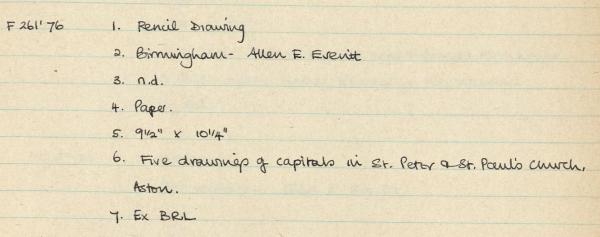 F 261' 76 1. Pencil Drawing
2. Birmingham - Allen E. Everitt
3. n.d.
4. Paper.
5. 9 1/2" x 10 1/4"
6. Five drawings of capitals in St. Peter & St. Paul's Church,
Aston.
7. Ex BRL